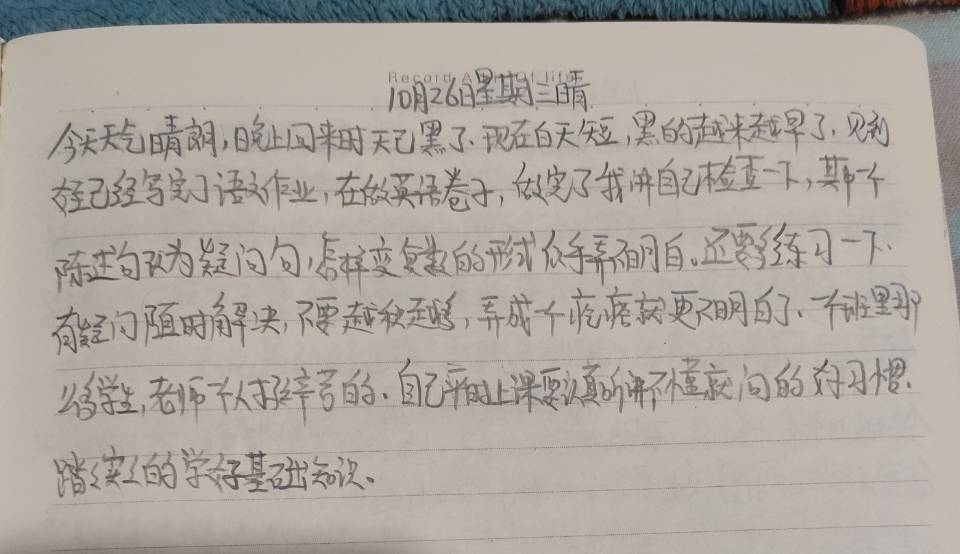 Record A
of life
10月26日星期三晴
今天天气晴朗,晚上回来时天已黑了.现在白天短,黑的越来越早了.见到
娃已经写完了语文作业,在做英语卷子,做完了我讲自己检查一下,其中一个
陈述句改为疑问句,怎样变复数的形式似乎弄不明白。还要多练习一下.
有疑问随时解决,不要越积越多,弄成个疙瘩就更不明白了、一个班里那
么多学生,老师一个人挺辛苦的.自己平时上课要认真听讲不懂就问的好习惯.
踏踏实实的学好基础知识。